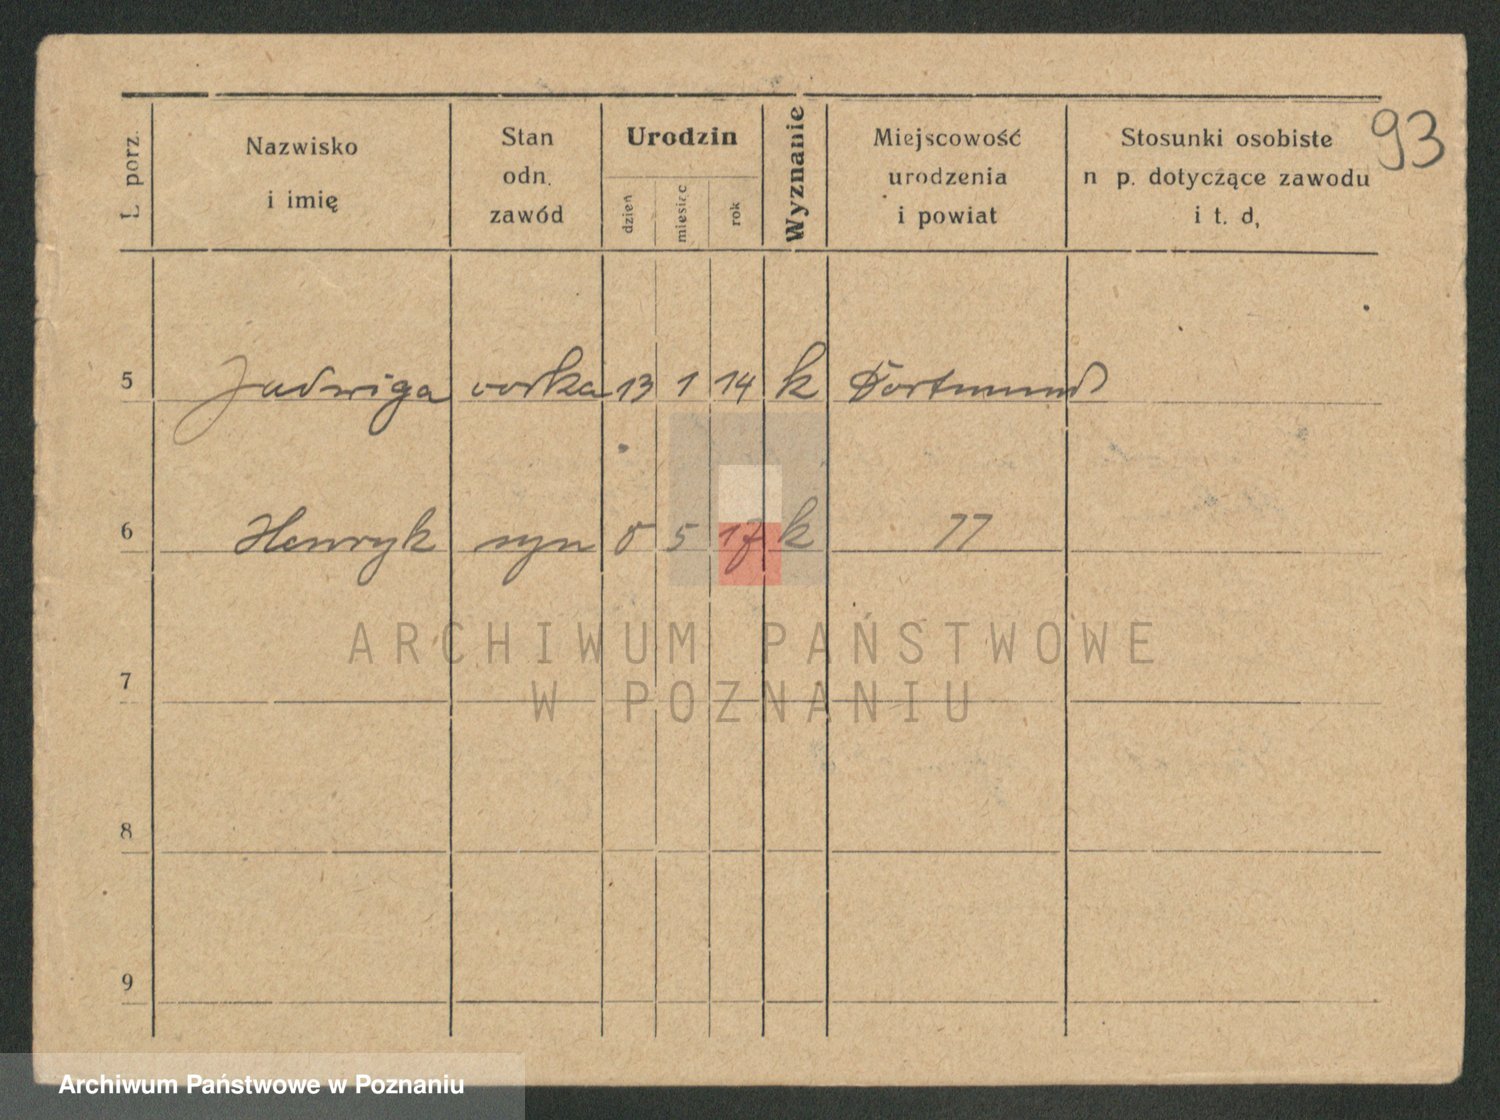 93
L. porz.
Nazwisko
i imię
Stan
odn.
zawód
Urodzin
dzień
miesiąc
rok
Wyznanie
Miejscowość
urodzenia
i powiat
Stosunki osobiste
n p. dotyczące zawodu
i t. d,
5 Jadwiga corka 13 1 14 k Dortmund
6 Henryk syn 5 17 k "
7
8
9
ARCHIWUM PAŃSTWOWE
W POZNANIU
Archiwum Państwowe w Poznaniu